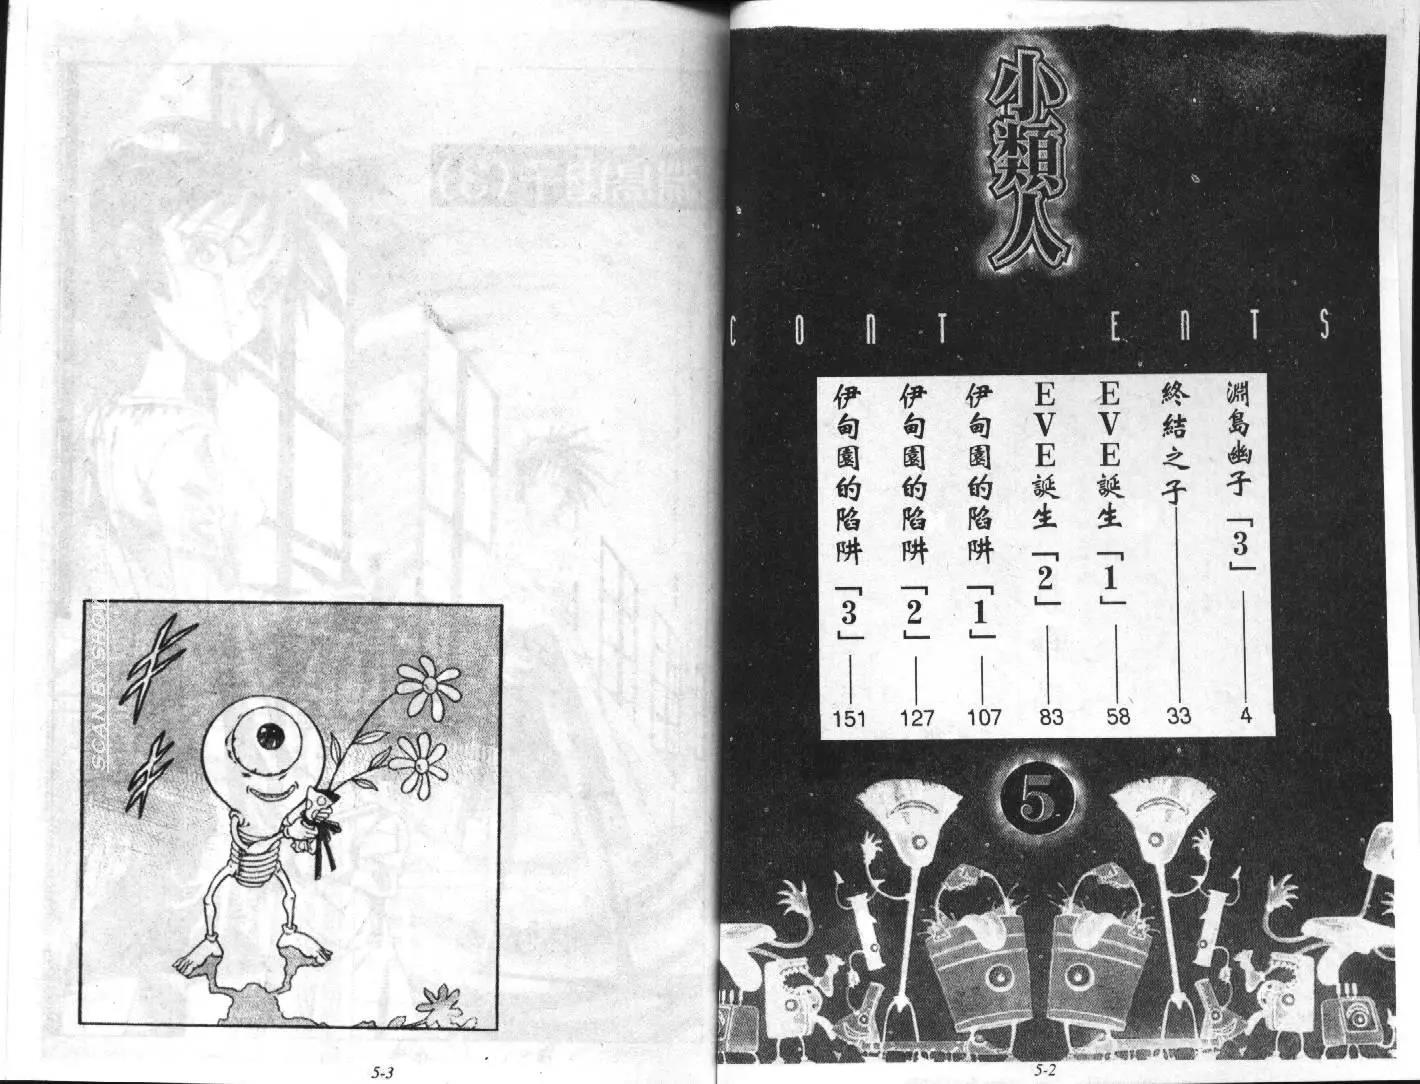 小類人
CONTENTS
淵島幽子「3」 4
終結之子 33
EVE誕生「1」 58
EVE誕生「2」 83
伊甸園的陷阱「1」 107
伊甸園的陷阱「2」 127
伊甸園的陷阱「3」 151
5
5-2
SCAN BY SHO
5-3